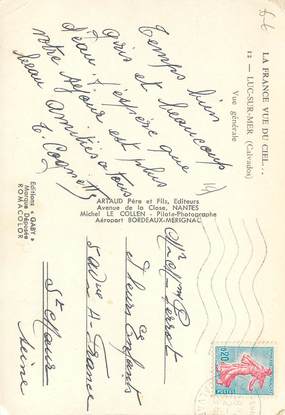 LA FRANCE VUE DU CIEL...
12 — LUC-SUR-MER (Calvados)
Vue générale
Temps bien
gris et beaucoup
d'eau. J'espère que
votre séjour est plus
beau. Amitiés à tous
ARTAUD Père et Fils, Editeurs
Avenue de la Close, NANTES
Michel LE COLLEN - Pilote-Photographe
Aéroport BORDEAUX-MERIGNAC
Editions "GABY"
Marque Déposée
ROMACOLOR
Perrot
et leurs enfants
France
St Maur
Seine
0,20
POSTES